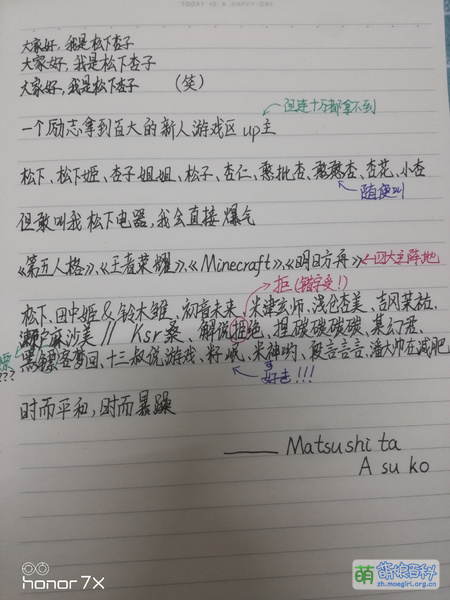 TODAY IS A HAPPY DAY
大家好,我是松下杏子
大家好,我是松下杏子
大家好,我是松下杏子 (笑)
但连十万都拿不到
一个励志拿到百大的新人游戏区up主
松下、松下姬、杏子姐姐、松子、杏仁、憨批杏、憨憨杏、杏花、小杏
随便叫
但敢叫我松下电器,我会直接爆气
《第五人格》、《王者荣耀》、《Minecraft》、《明日方舟》←四大主阵地
拒(错字受!)
松下、田中姬&铃木雏、初音未来、米津玄师、浅仓杏美、吉冈茉祐、
濑户麻沙美 // Ksr桑、解说拒绝、担碳碳碳碳、某幻君、
黑镖客梦回、十三叔说游戏、籽岷、米神哟、殷言言言、潘大帅在减肥
???
好走!!!
时而平和,时而暴躁
—— Matsushita
Asuko
honor 7X
萌 萌娘百科
zh.moegirl.org.cn